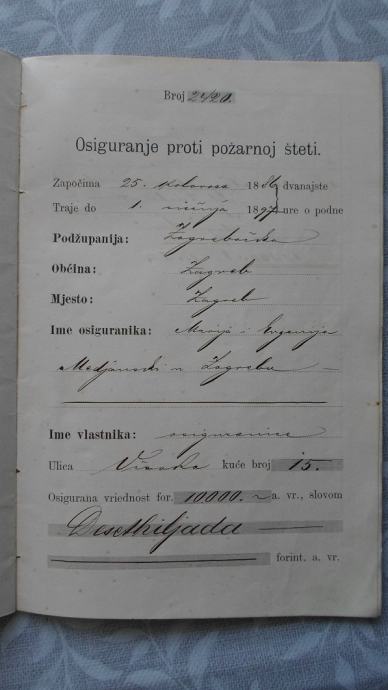 Broj 2420.
Osiguranje proti požarnoj šteti.
Započima 25. kolovoza 1886 dvanajste
Traje do 1. siečnja 1897 ure o podne
Podžupanija: Zagrebačka
Obćina: Zagreb
Mjesto: Zagreb
Ime osiguranika: Marija i Evgenija
u Zagrebu
Ime vlastnika: osiguranice
Ulica kuće broj 15.
Osigurana vriednost for. 10000. a. vr., slovom
Desethiljada
forint. a. vr.